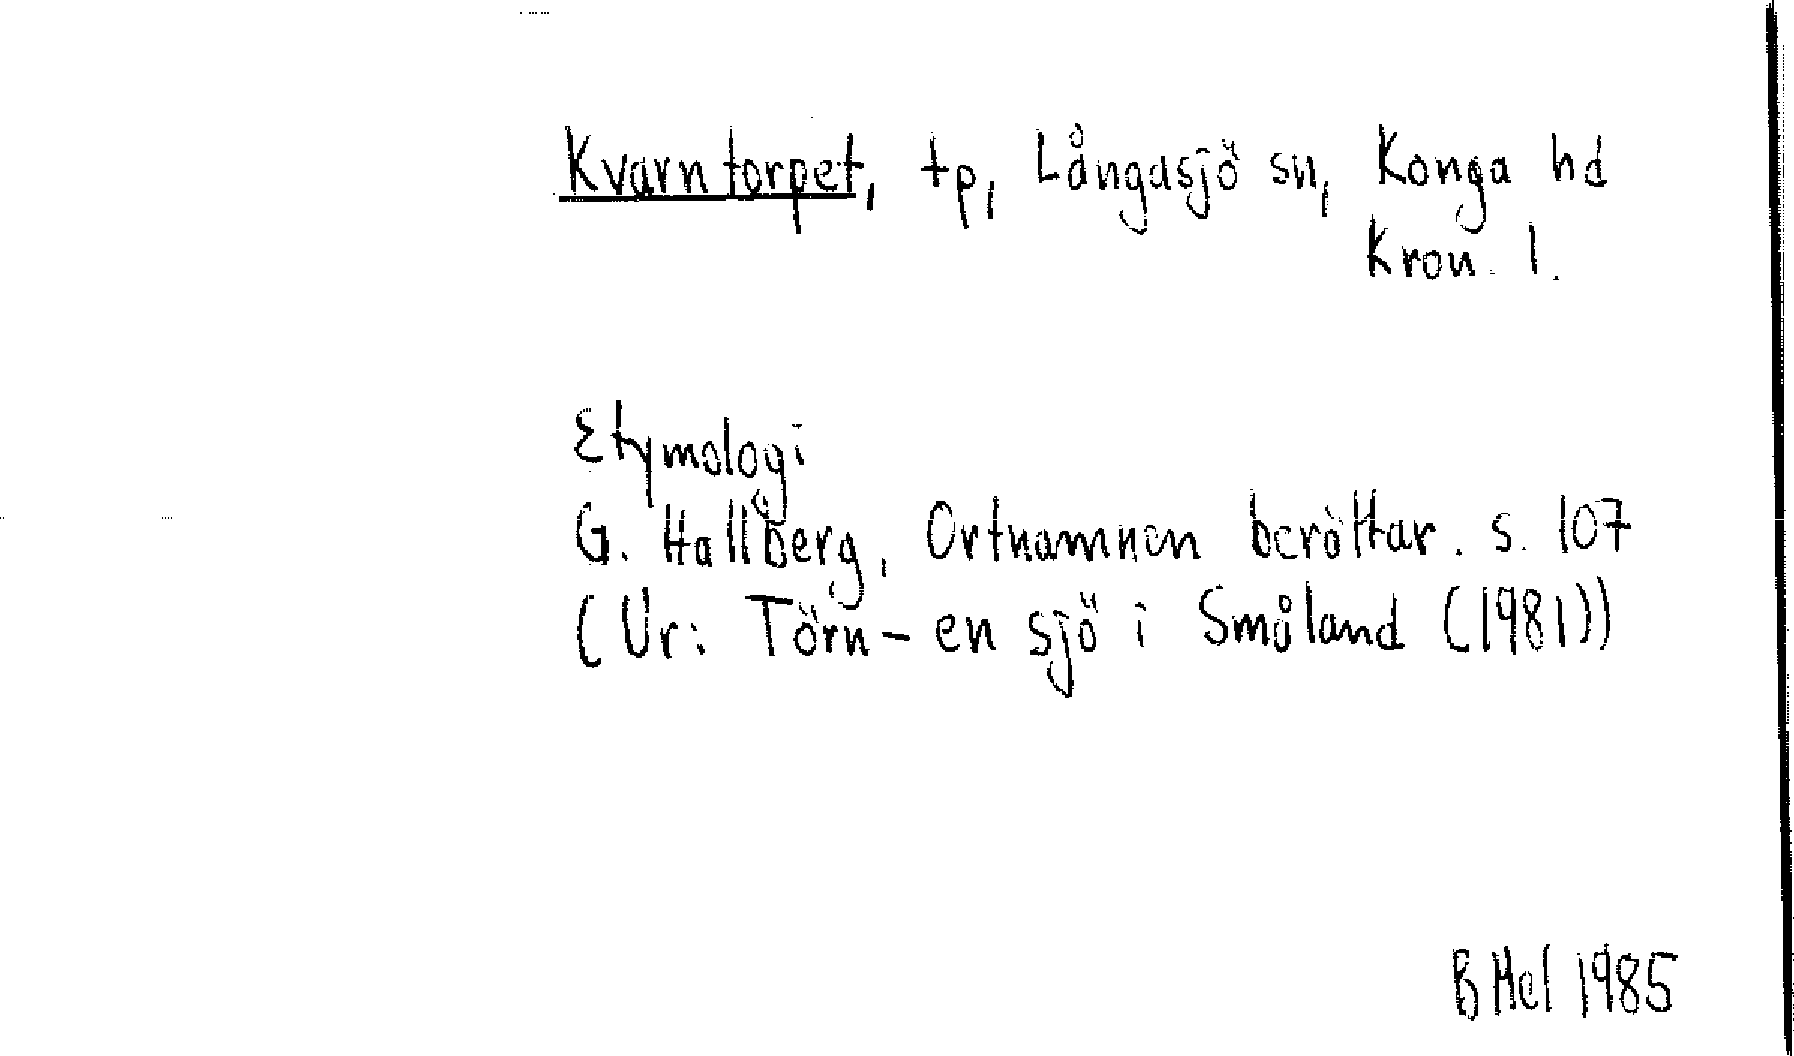 Kvarntorpet, tp, Långasjö sn, Konga hd
Kron. l.
Etymologi
G. Hallberg, Ortnamnen berättar. s. 107
(Ur: Törn - en sjö i Småland (1981))
B Hel 1985